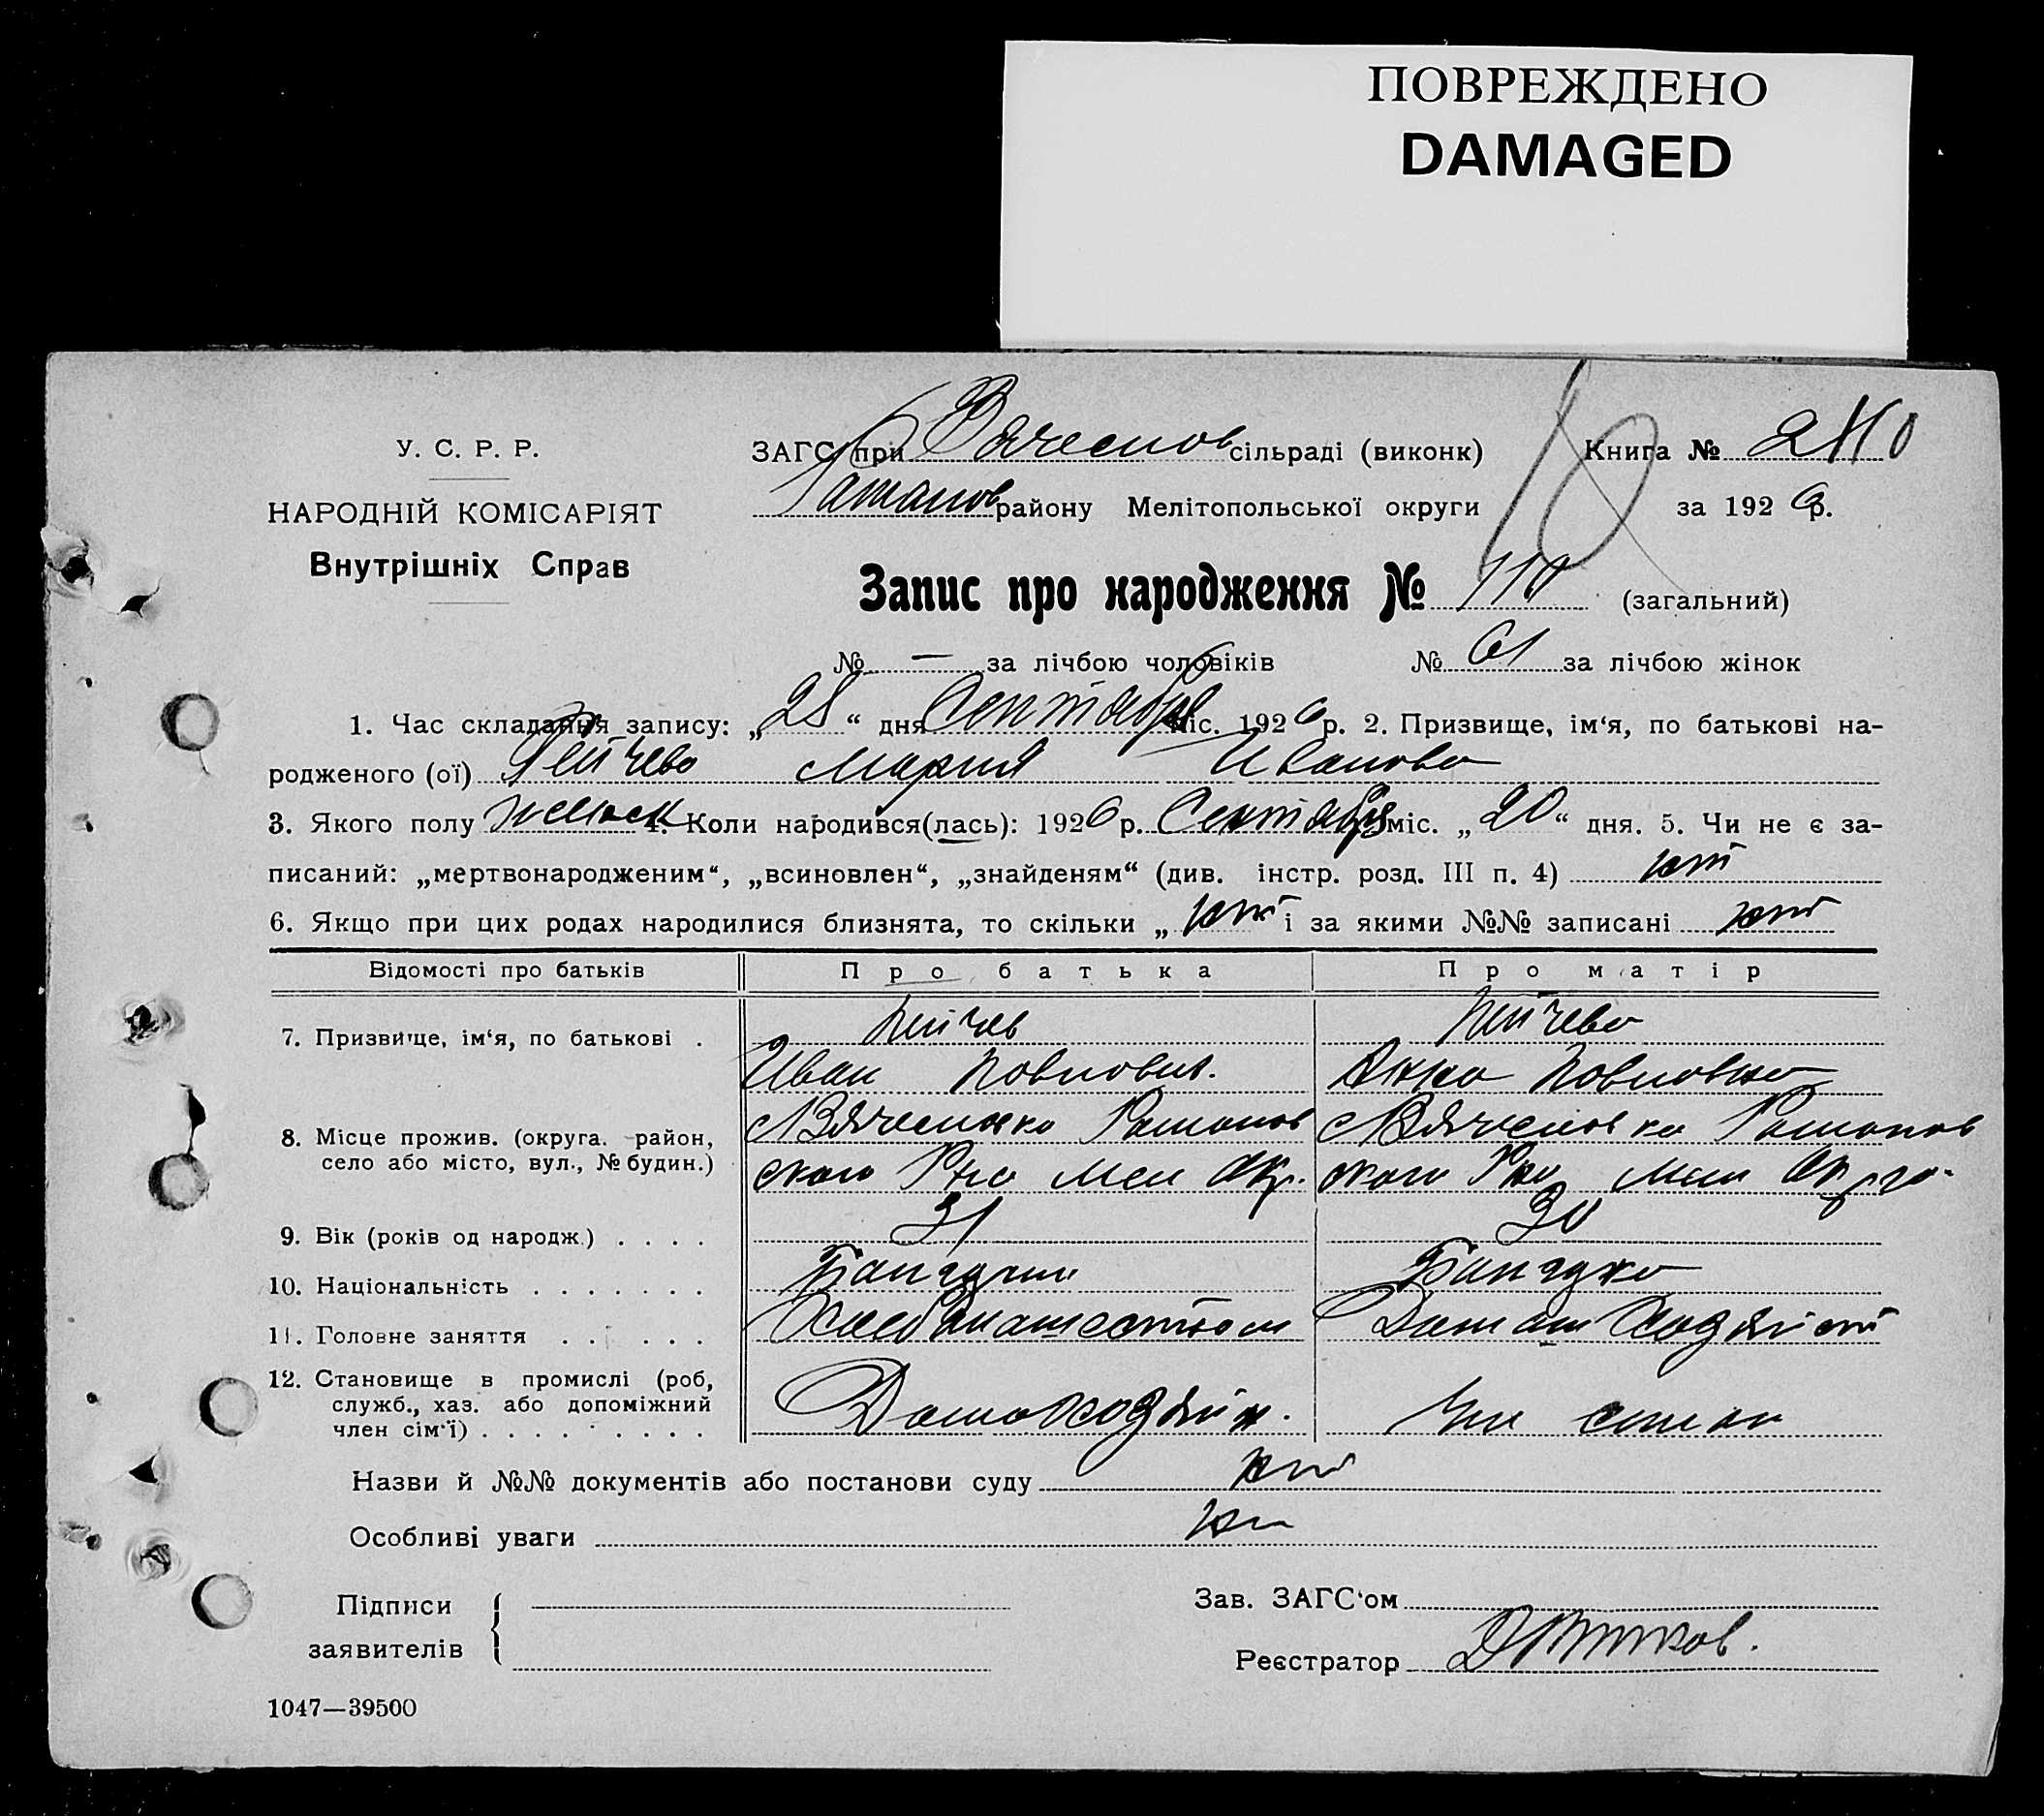 ПОВРЕЖДЕНО
DAMAGED
У. С. Р. Р.
НАРОДНІЙ КОМІСАРІЯТ
Внутрішніх Справ
ЗАГС при сільраді (виконк) Книга №
району Мелітопольської округи за 1926 р.
Запис про народження № 110 (загальний)
№ — за лічбою чоловіків № 61 за лічбою жінок
1. Час складання запису: „28“ дня Сентября міс. 1926 р. 2. Призвище, ім‘я, по батькові на-
родженого (ої) Пейчева Мария Иванова
3. Якого полу женск 4. Коли народився(лась): 1926 р. Сентября міс. „20“ дня. 5. Чи не є за-
писаний: „мертвонародженим“, „всиновлен“, „знайденям“ (див. інстр. розд. III п. 4) нет
6. Якщо при цих родах народилися близнята, то скільки „ нет і за якими №№ записані нет
Відомості про батьків Про батька Про матір
7. Призвище, ім‘я, по батькові . Пейчев Пейчева
Иван Павлович. Анна Павловна
8. Місце прожив. (округа. район, село або місто, вул., № будин.) с Вячеславка Романов с Вячеславка Романов
ского Р-на Мел Окр. ского Р-на Мел
9. Вік (років од народж.) . . . . 31 30
10. Національність . . . . . . . Болгарин Болгарка
11. Головне заняття . . . . . . Хлебопашеством Домаш Хозяйст
12. Становище в промислі (роб, служб., хаз. або допоміжний член сім‘ї) . . . . . . . . . Домохозяин. Чл семьи
Назви й №№ документів або постанови суду нет
Особливі уваги нет
Підписи заявителів
Зав. ЗАГС‘ом
Реєстратор
1047—39500